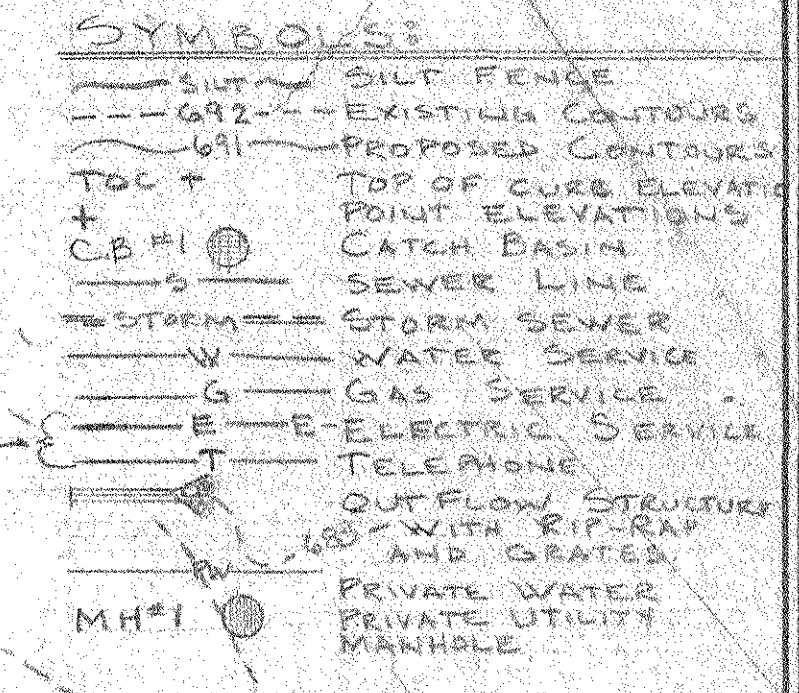 SYMBOLS:
SILT SILT FENCE
692 EXISTING CONTOURS
691 PROPOSED CONTOURS
TOC + TOP OF CURB ELEVATIO
+ POINT ELEVATIONS
C.B #1 CATCH BASIN
S SEWER LINE
STORM STORM SEWER
W WATER SERVICE
G GAS SERVICE
E E ELECTRIC SERVICE
T TELEPHONE
OUTFLOW STRUCTURE
WITH RIP-RAP
685
AND GRATES.
PW PRIVATE WATER
MH#1 PRIVATE UTILITY
MANHOLE